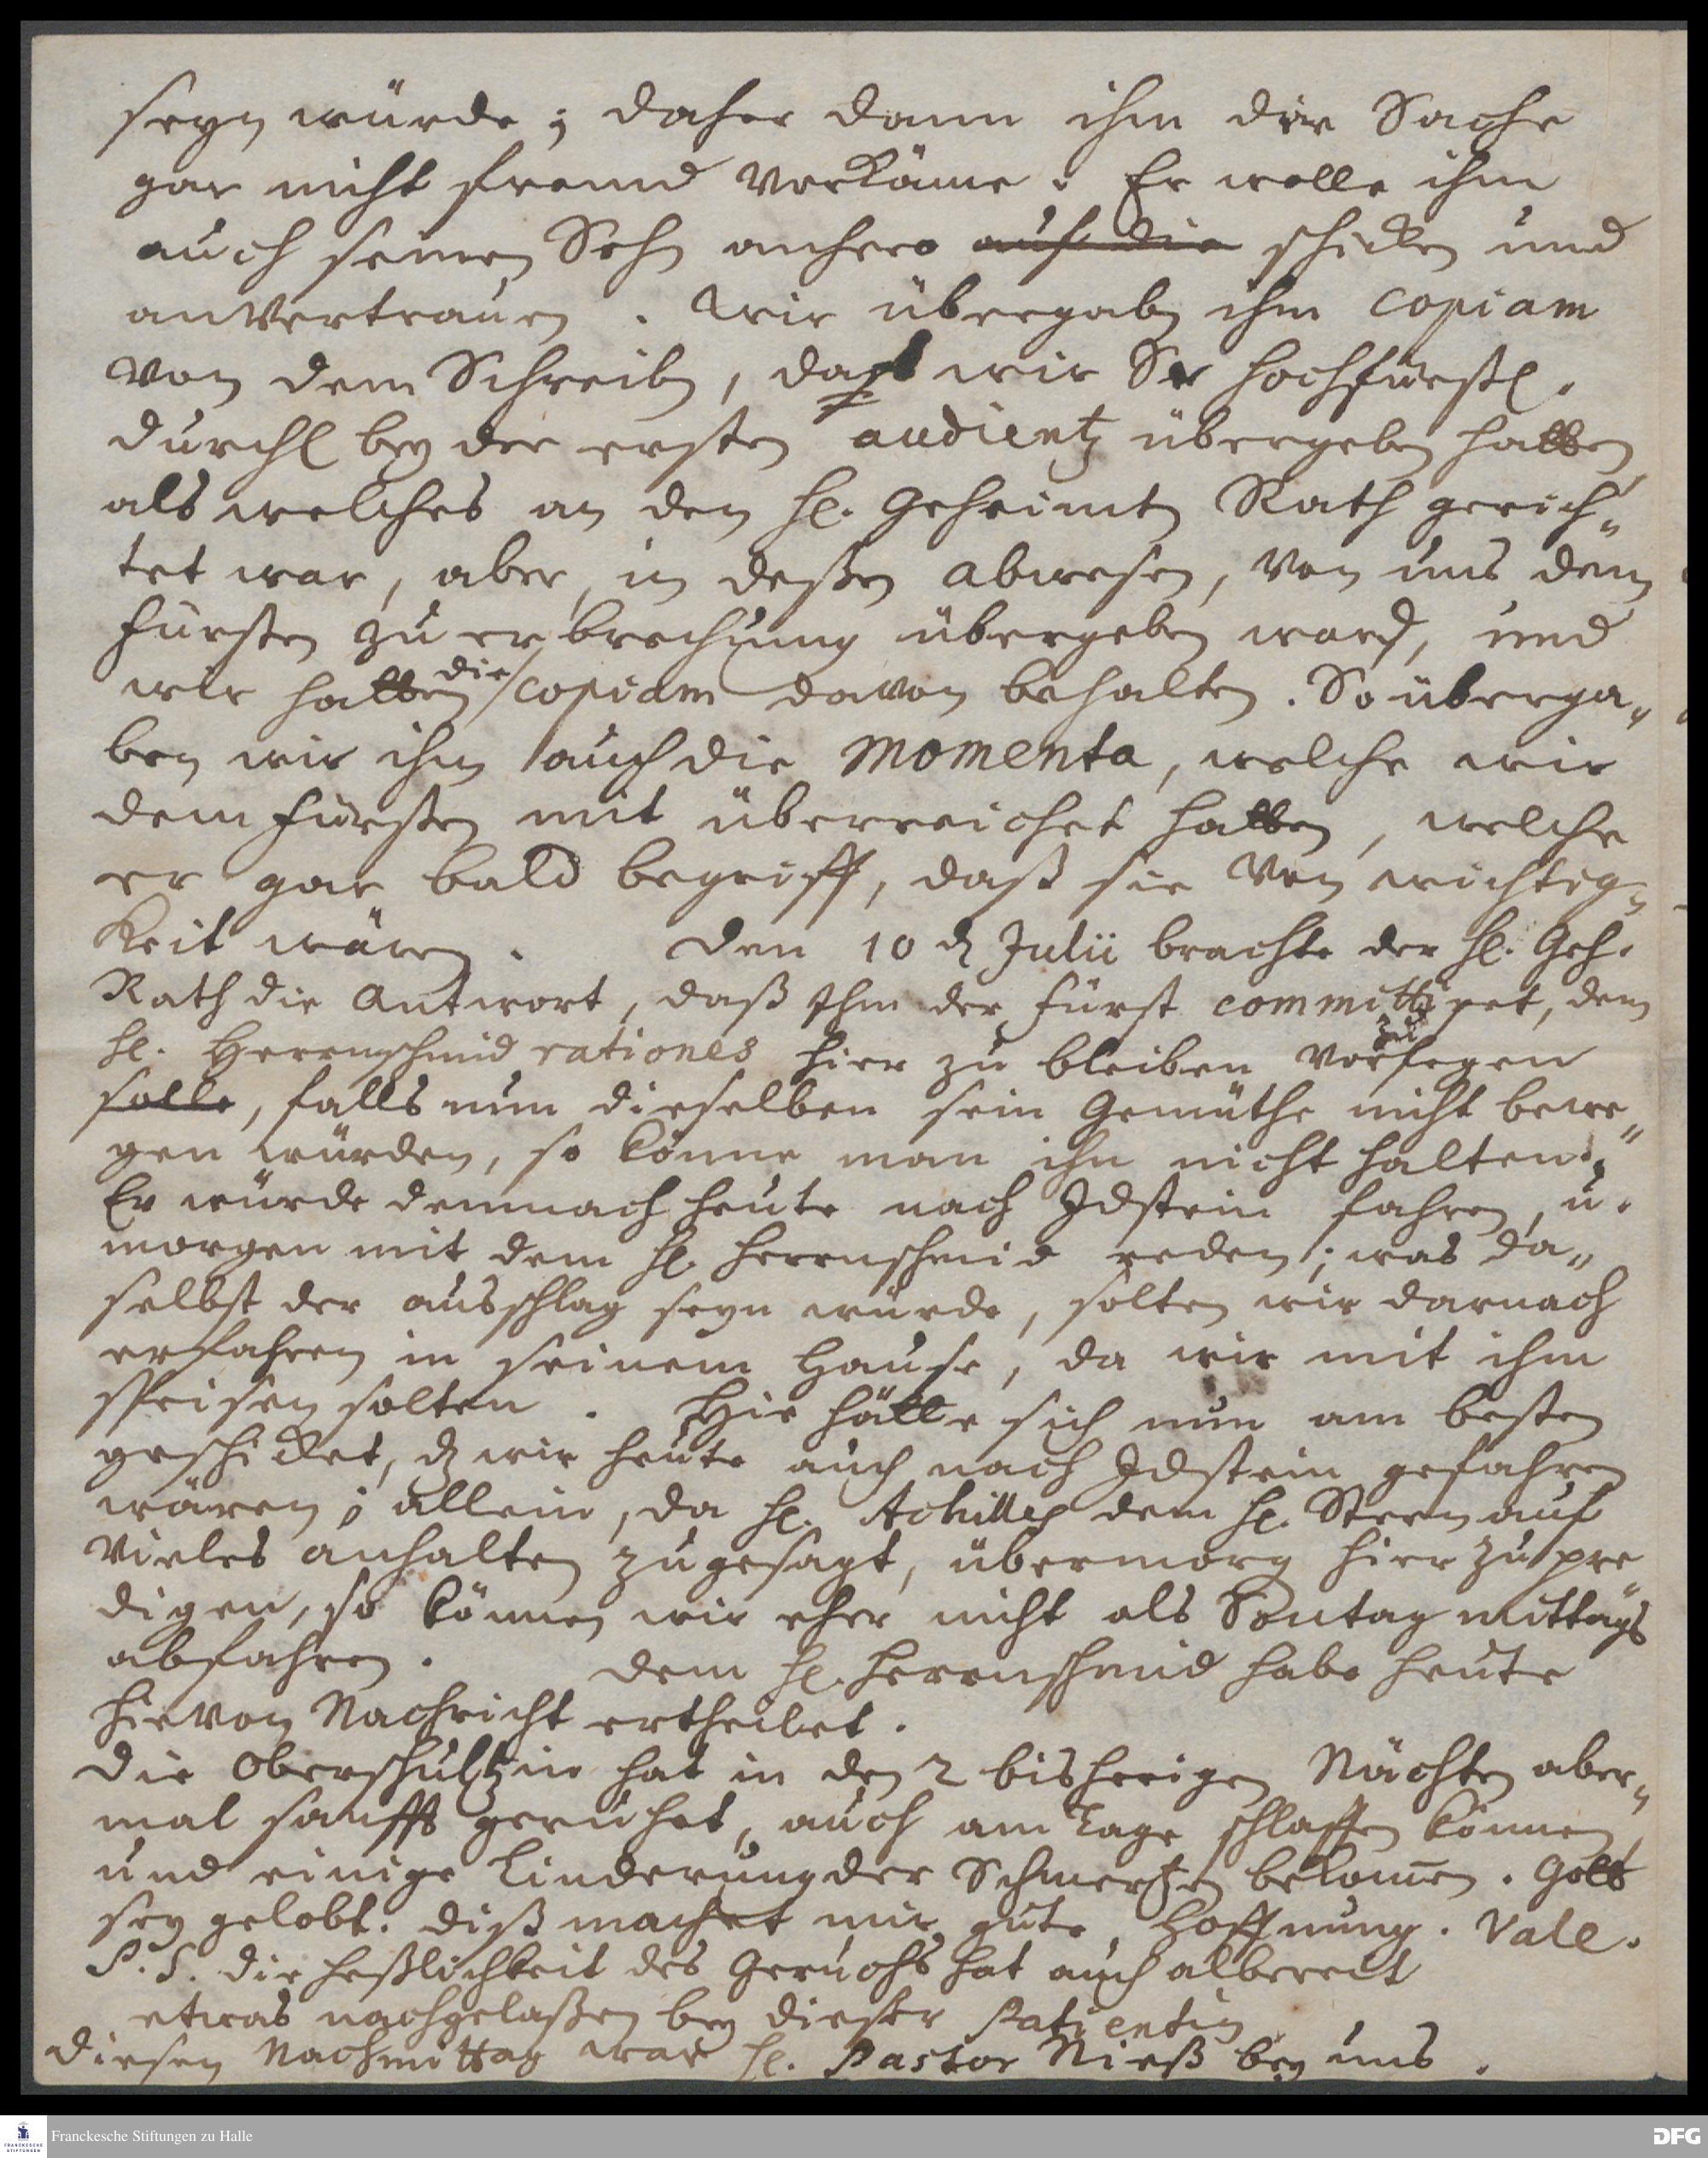 seyn würde; daher dann ihm die Sache
gar nicht fremd vorkäme. Er wolle ihm
auch seinen Sohn anhero auf die schicken und
anvertrauen. Wir übergaben ihm copiam
von dem Schreiben, daß wir Sr Hochfürstl.
Durchl bey der ersten audientz übergeben hatten
als welches an den H. Geheimten Rath gerich„
tet war, aber, in deßen abwesen, von uns dem
Fürsten zu erbrechung übergeben ward, und
wir hatten die copiam davon behalten. So überga„
ben wir ihm auch die Momenta, welche wir
dem Fürsten mit überreichet hatten, welche
er gar bald begriff, daß sie von wichtig„
keit wären. Den 10 d Julii brachte der H. Geh.
Rath die Antwort, daß Ihm der Fürst committiret, dem
H. Herrnschmid rationes hier zu bleiben vorzulegen
solle, falls nun dieselben sein Gemüthe nicht bewe„
gen würden, so könne man ihn nicht halten.
Er würde demnach heute nach Idstein fahren, u.
morgen mit dem H. Herrnschmid reden; was da„
selbst der ausschlag seyn würde, solten wir darnach
erfahren in seinem Hause, da wir mit ihm
speisen solten. Hie hätte sich nun am besten
geschicket, dz wir heute auch nach Idstein gefahren
wären; allein, da H. Achilles dem H. Stern auf
vieles anhalten zugesagt, übermorg hier zu pre„
digen, so können wir eher nicht als Sontag mittags
abfahren. Dem H. Herrnschmid habe heute
hievon Nachricht ertheilet.
Die Oberschultzin hat in den 2 bisherigen Nächten aber„
mal sanfft geruhet, auch am Tage schlaffen können,
und einige Linderung der Schmertzen bekomen. Gott
sey gelobt. Diß machet mir gute Hoffnung. Vale.
P. S. Die heßlichkeit des Geruchs hat auch albereit
etwas nachgelaßen bey dieser Patientin.
Diesen Nachmittag war H. Pastor Nieß bey uns.
Franckesche Stiftungen zu Halle
DFG